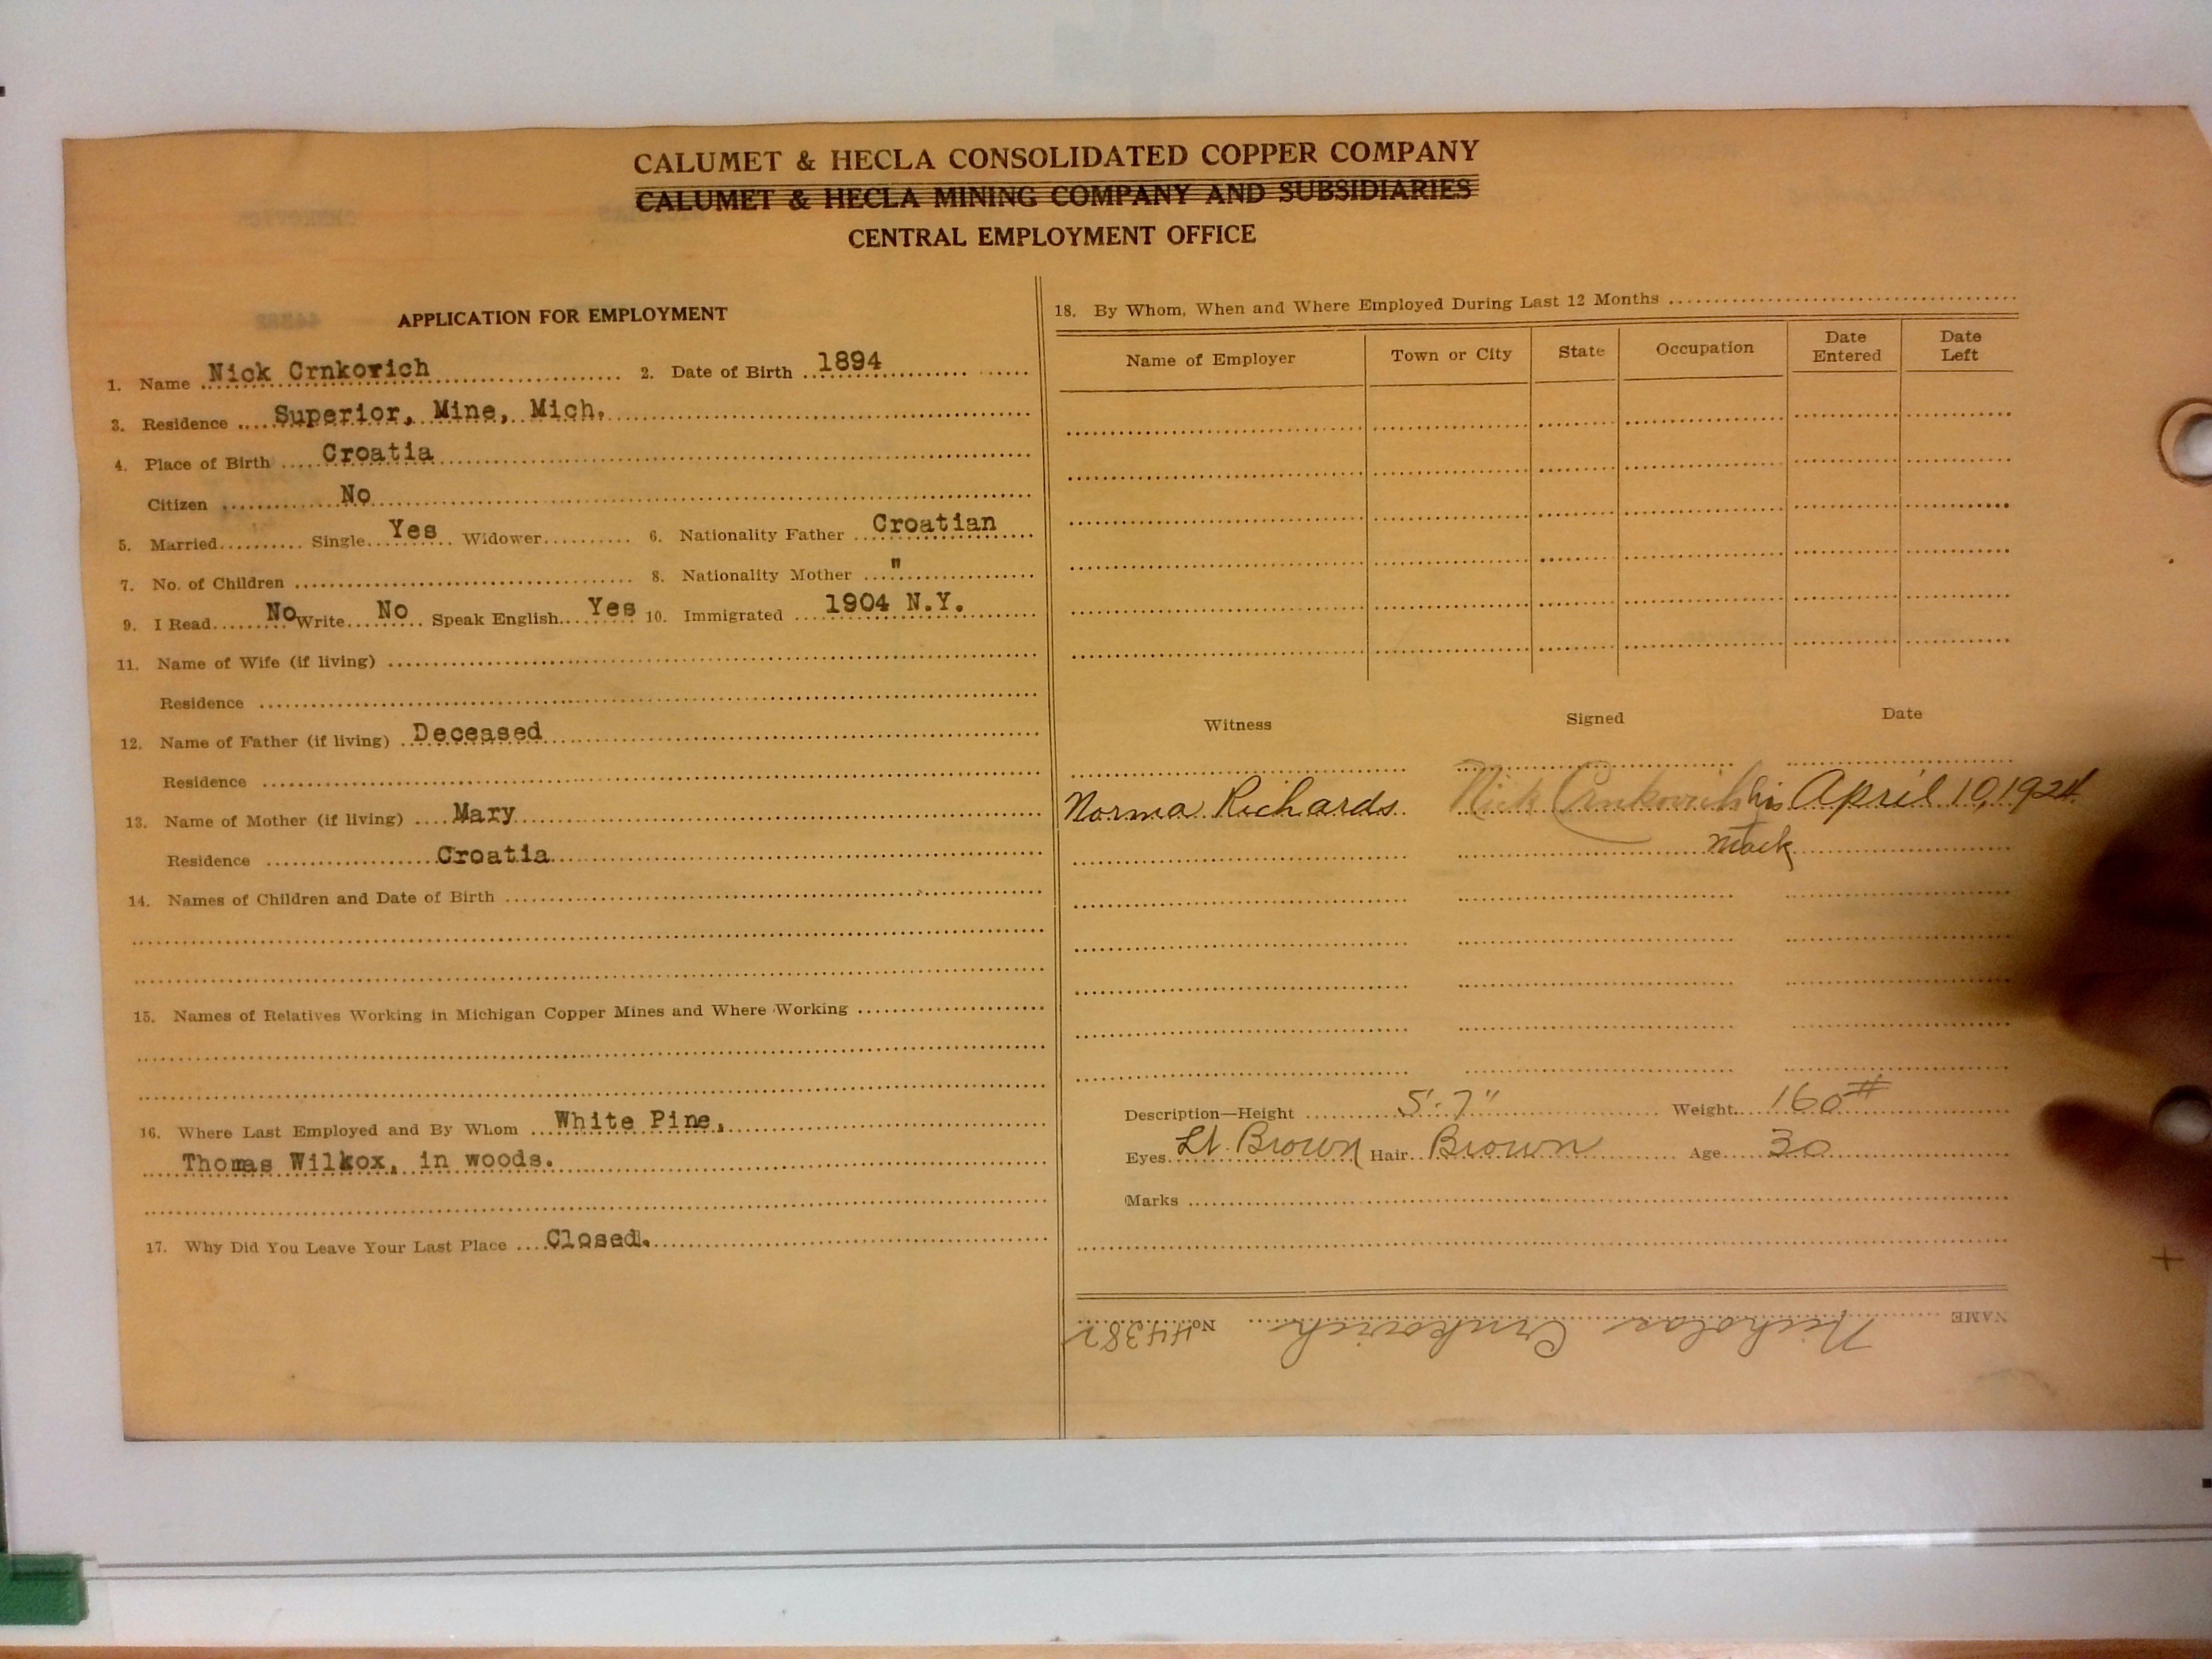 CALUMET & HECLA CONSOLIDATED COPPER COMPANY
CALUMET & HECLA MINING COMPANY AND SUBSIDIARIES
CENTRAL EMPLOYMENT OFFICE
APPLICATION FOR EMPLOYMENT
1. Name Nick Crnkovich 2. Date of Birth 1894
3. Residence Superior, Mine, Mich.
4. Place of Birth Croatia
Citizen No
5. Married Single Yes Widower 6. Nationality Father Croatian
7. No. of Children 8. Nationality Mother "
9. I Read No Write No Speak English Yes 10. Immigrated 1904 N.Y.
11. Name of Wife (if living)
Residence
12. Name of Father (if living) Deceased
Residence
13. Name of Mother (if living) Mary
Residence Croatia
14. Names of Children and Date of Birth
15. Names of Relatives Working in Michigan Copper Mines and Where Working
16. Where Last Employed and By Whom White Pine,
Thomas Wilkox, in woods.
17. Why Did You Leave Your Last Place Closed.
18. By Whom, When and Where Employed During Last 12 Months
Name of Employer Town or City State Occupation Date Entered Date Left
Witness Signed Date
Norma Richards Nick Crnkovich his April 10, 1924
mark
Description—Height 5'-7" Weight 160#
Eyes Lt Brown Hair Brown Age 30
Marks
NAME Nicholas Crnkovich No. 44382